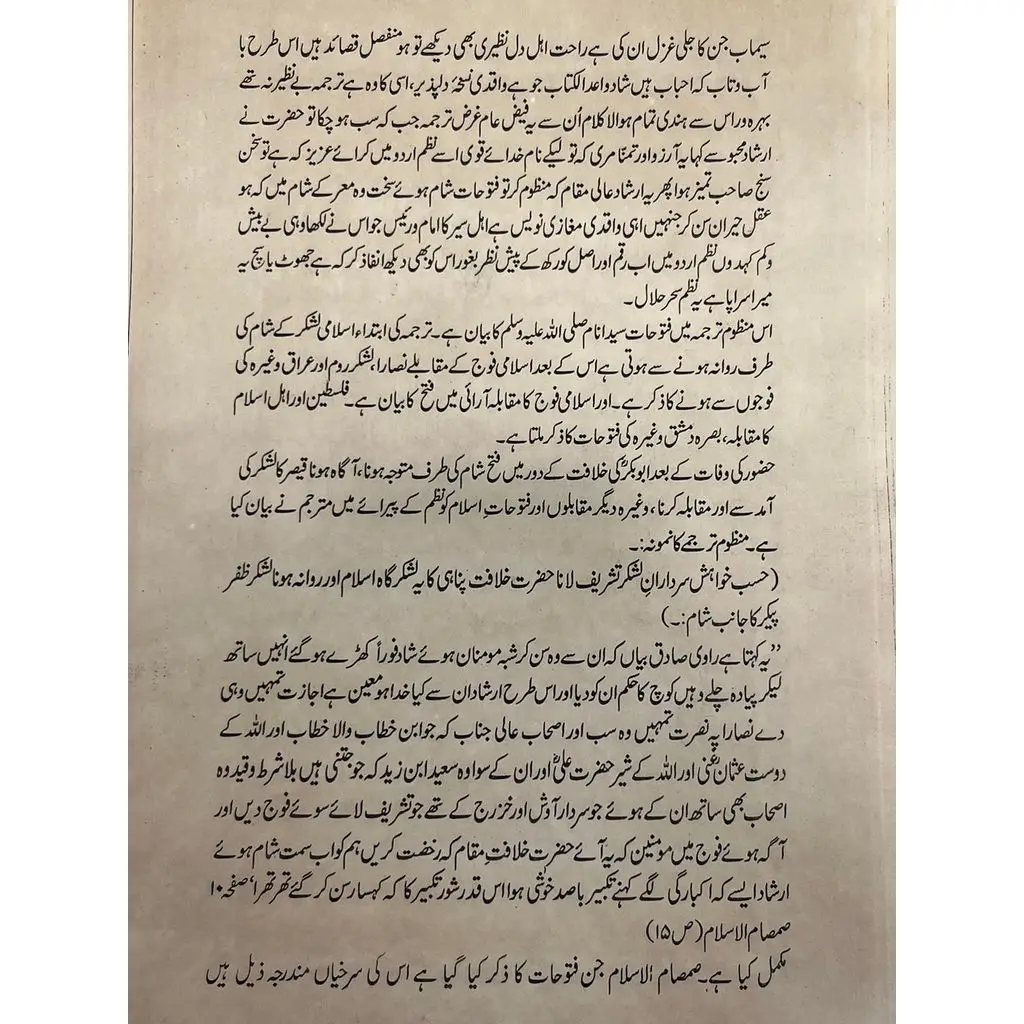 سیماب جن کا جلی غزل ان کی ہے راحت اہل دل نظیری بھی دیکھے تو ہو منفصل قصائد ہیں اس طرح با
آب و تاب کہ احباب ہیں شاد و اعدا لکتاب جو ہے واقدی نسخۂ دلپذیر، اسی کا وہ ہے ترجمہ بے نظیر نہ تھے
بہرہ ور اس سے ہندی تمام ہوا لا کلام اُن سے یہ فیض عام غرض ترجمہ جب کہ سب ہو چکا تو حضرت نے
ارشاد مجبو سے کہا یہ آرزو اور تمنّا مری کہ تو لیکے نام خدائے قوی اسے نظم اردو میں کرائے عزیز کہ ہے تو سخن
سنج صاحب تمیز ہوا پھر یہ ارشاد عالی مقام کہ منظوم کر تو فتوحات شام ہوئے سخت وہ معرکے شام میں کہ ہو
عقل حیران سن کر جنہیں اہی واقدی مغازی نویس ہے اہل سیر کا امام و رئیس جو اس نے لکھا وہی بے بیش
وکم کہدوں نظم اردو میں اب رقم اور اصل کو رکھ کے پیش نظر بغور اس کو بھی دیکھ انفاذ کر کہ ہے جھوٹ یا سچ یہ
میرا سراپا ہے یہ نظم سحر حلال۔
اس منظوم ترجمہ میں فتوحات سید انام صلی اللہ علیہ وسلم کا بیان ہے۔ ترجمہ کی ابتداء اسلامی لشکر کے شام کی
طرف روانہ ہونے سے ہوتی ہے اس کے بعد اسلامی فوج کے مقابلے نصارا، لشکر روم اور عراق وغیرہ کی
فوجوں سے ہونے کا ذکر ہے۔ اور اسلامی فوج کا مقابلہ آرائی میں فتح کا بیان ہے۔ فلسطین اور اہل اسلام
کا مقابلہ، بصرہ دمشق وغیرہ کی فتوحات کا ذکر ملتا ہے۔
حضور کی وفات کے بعد ابوبکرؓ کی خلافت کے دور میں فتح شام کی طرف متوجہ ہونا، آگاہ ہونا قیصر کا لشکر کی
آمد سے اور مقابلہ کرنا، وغیرہ دیگر مقابلوں اور فتوحاتِ اسلام کو نظم کے پیرائے میں مترجم نے بیان کیا
ہے۔ منظوم ترجمے کا نمونہ:۔
(حسب خواہش سردارانِ لشکر تشریف لانا حضرت خلافت پناہی کا یہ لشکر گاہ اسلام اور روانہ ہونا لشکر ظفر
پیکر کا جانب شام:۔)
”یہ کہتا ہے راوی صادق بیاں کہ ان سے وہ سن کر شہ مومنان ہوئے شاد فوراً کھڑے ہو گئے انہیں ساتھ
لیکر پیادہ چلے وہیں کوچ کا حکم ان کو دیا اور اس طرح ارشاد ان سے کیا خدا ہو معین ہے اجازت تمہیں وہی
دے نصارا پہ نصرت تمہیں وہ سب اور اصحاب عالی جناب کہ جو ابن خطاب والا خطاب اور اللہ کے
دوست عثمان غنیؓ اور اللہ کے شیر حضرت علیؓ اور ان کے سوا وہ سعید ابن زید کہ جو جنتی ہیں بلا شرط و قید وہ
اصحاب بھی ساتھ ان کے ہوئے جو سردار آوش اور خزرج کے تھے جو تشریف لائے سوئے فوج دیں اور
آگہ ہوئے فوج میں مومنین کہ یہ آئے حضرت خلافتِ مقام کہ رخصت کریں ہم کو اب سمت شام ہوئے
ارشاد ایسے کہ اکبارگی لگے کہنے تکبیر با صد خوشی ہوا اس قدر شور تکبیر کا کہ کہسار سن کر گئے تھر تھرا‘ صفحہ ۱۰
صمصام الاسلام (ص ۱۵)
مکمل کیا ہے۔ صمصام الاسلام جن فتوحات کا ذکر کیا گیا ہے اس کی سرخیاں مندرجہ ذیل ہیں